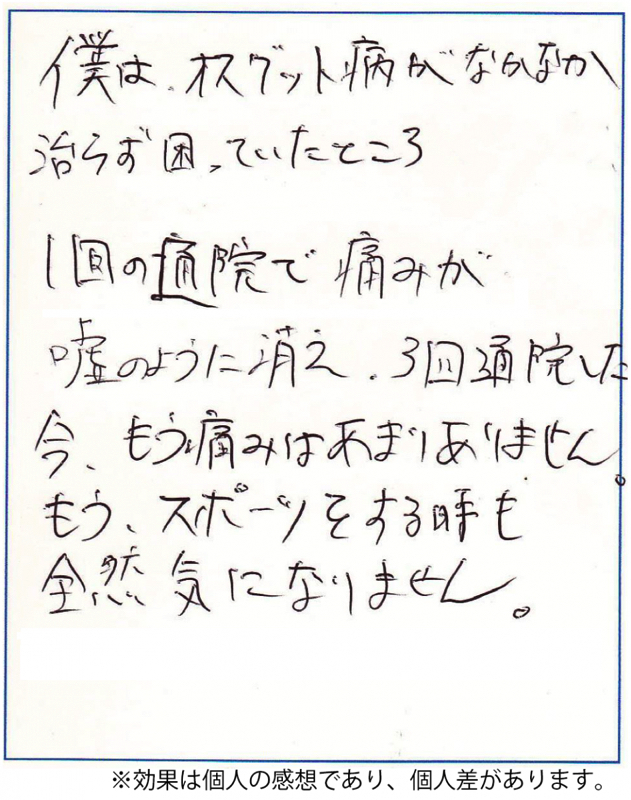 僕は、オスグット病がなかなか
治らず困っていたところ
1回の通院で痛みが
嘘のように消え、3回通院した
今、もう痛みはあまりありません。
もう、スポーツをする時も
全然気になりません。
※効果は個人の感想であり、個人差があります。